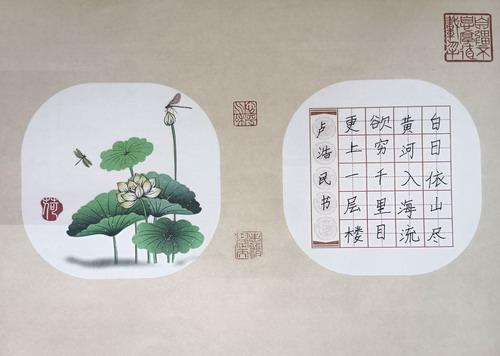 白日依山尽
黄河入海流
欲穷千里目
更上一层楼
卢浩民书
荷